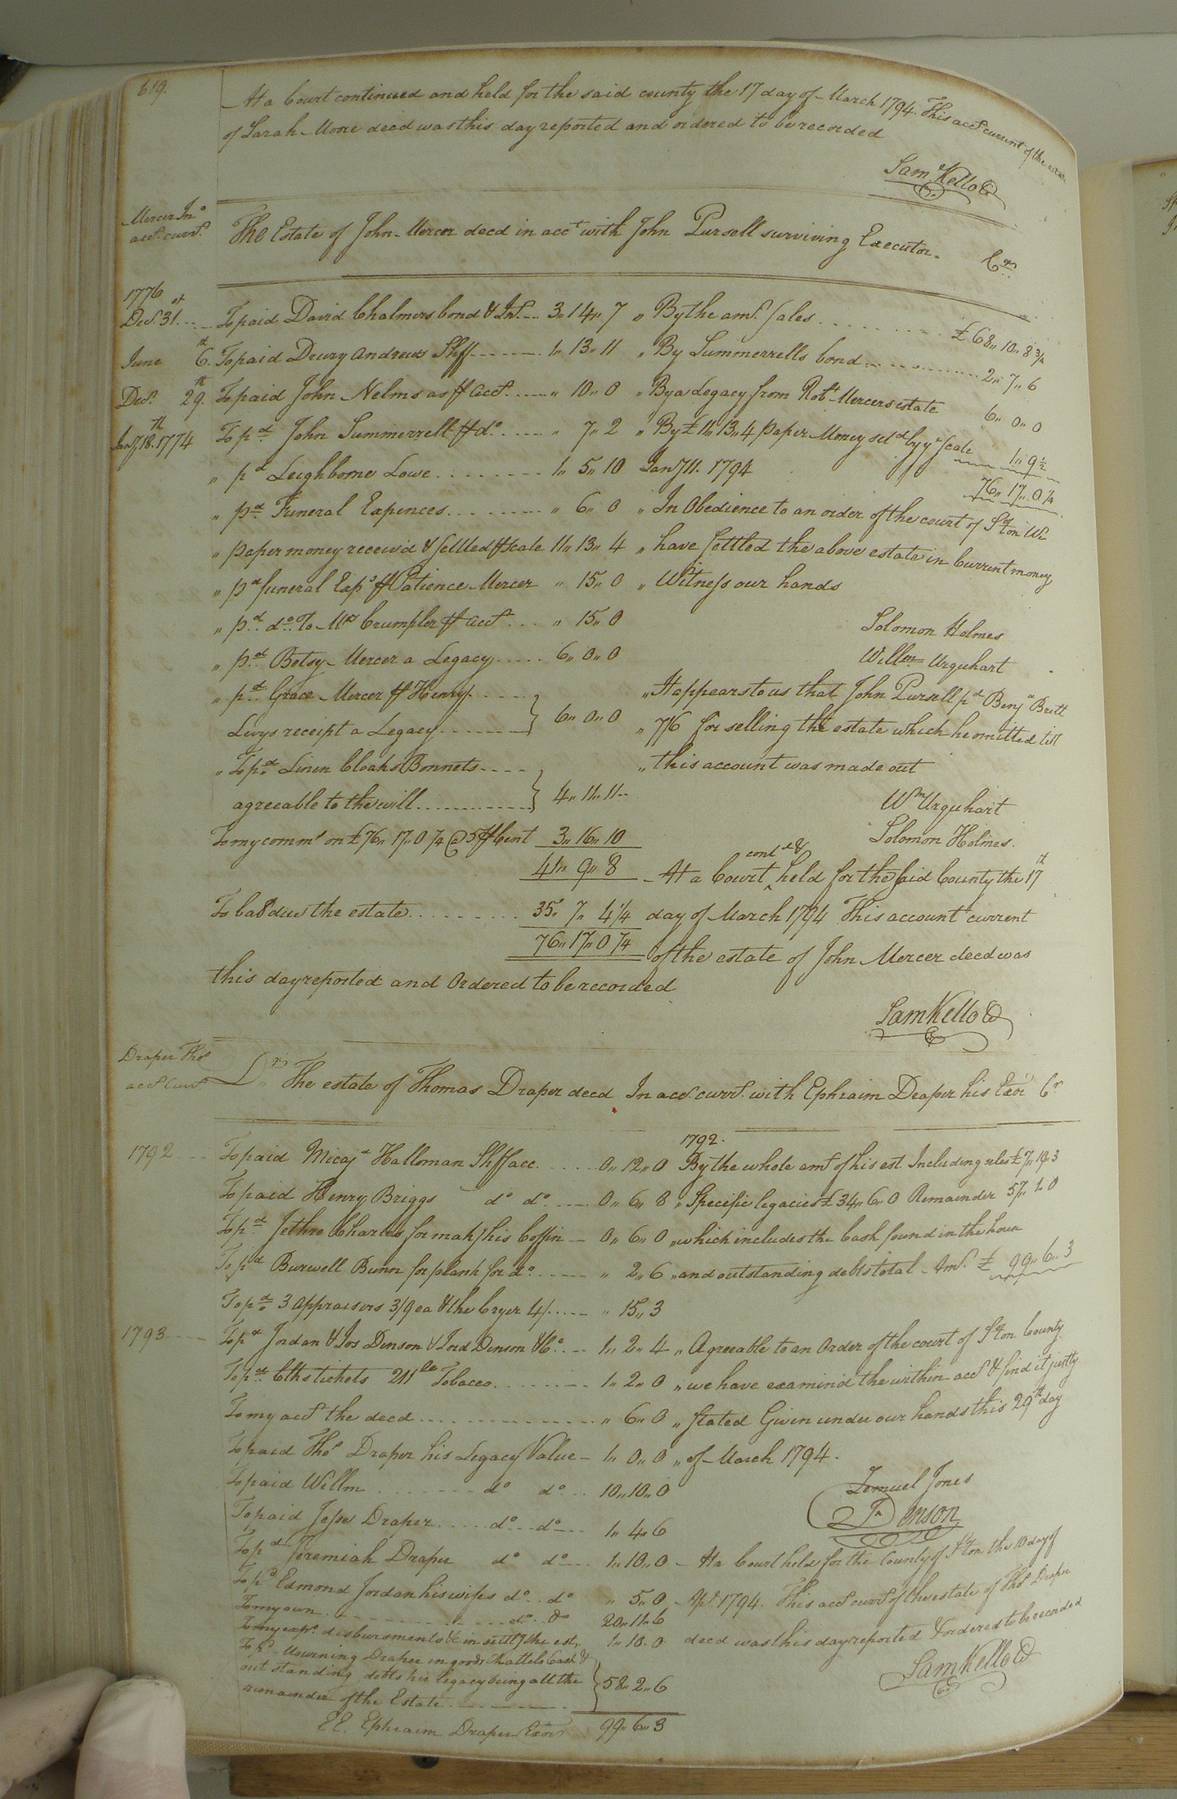 619.
At a Court continued and held for the said county the 17 day of March 1794. This acct. current of the estate
of Sarah Mone decd was this day reported and ordered to be recorded
Sam Kello C
Mercer Jno
acct. curr.
The Estate of John Mercer decd in acct with John Pursell surviving Executor. Cr.
1776
Decr. 31st To paid David Chalmers bond & Int. 3,, 14,, 7
June 6th To paid Drury Andrews Shff 1,, 13,, 11
Decr. 29th To paid John Nelms as pr acct. ,, 10,, 0
Jany 18th 1774 To pd John Summerrell pr do. ,, 7,, 2
,, pd Leighborne Lowe 1,, 5,, 10
,, pd Funeral Expences ,, 6,, 0
,, paper money receiv'd & settled pr scale 11,, 13,, 4
,, pd funeral Exps pr Patience Mercer ,, 15,, 0
,, pd do To Mrs Crumpler pr acct. ,, 15,, 0
,, pd Betsy Mercer a Legacy 6,, 0,, 0
,, pd Grace Mercer pr Henry
Levys receipt a Legacy 6,, 0,, 0
,, To pd Linen Cloaks Bonnets
agreeable to the will 4,, 11,, 11
To my comms on £76,, 17,, 0 1/4 @ 5 pr Cent 3,, 16,, 10
41,, 9,, 8
To ba8 due the estate 35,, 7,, 4 1/4
76,, 17,, 0 1/4
,, By the amt. sales £68,, 10,, 8 3/4
,, By Summerrells bond 2,, 7,, 6
,, By a Legacy from Robt Mercers estate 6,, 0,, 0
,, By £11,, 13,, 4 paper Money setd by ye scale 1,, 9 1/2
Jany 11. 1794 76,, 17,, 0 1/4
,, In Obedience to an order of the court of Ston We
,, have settled the above estate in Current money
,, Witness our hands
Solomon Holmes
Willm Urquhart
,, It appears to us that John Pursell pd Benjn Britt
,, 7/6 for selling the estate which he omitted till
,, this account was made out
Wm Urquhart
Solomon Holmes.
At a Court contd & held for the said County the 17th
day of March 1794 This account current
of the estate of John Mercer decd was
this day reported and Ordered to be recorded
Sam Kello C
Draper Thos
acct. Curr.
Dr. The estate of Thomas Draper decd In acct. curr. with Ephraim Draper his Exor Cr
1792 To paid Micajh Halloman Shff acc. 0,, 12,, 0
To paid Henry Briggs do do. 0,, 6,, 8
To pd Jethro Charles for makg his Coffin 0,, 6,, 0
To pd Burwell Bunn for plank for do. ,, 2,, 6
To pd 3 appraisers 3/9 ea & the Cryer 4/. ,, 15,, 3
1793 To pd Jordan & Jos Denson & Jord Denson & Co. 1,, 2,, 4
To pd Clks tickets 211 lb Tobacco 1,, 2,, 0
To my acct. the decd ,, 6,, 0
To paid Thos Draper his Legacy Value 1,, 0,, 0
To paid Willm do do 10,, 10,, 0
To paid Jesse Draper do do 1,, 4,, 6
To pd Jeremiah Draper do do 1,, 10,, 0
To pd Edmond Jordan his wifes do do ,, 5,, 0
To my own do do 20,, 11,, 6
To my expt. disbursments &c in settlg the est. 1,, 10,, 0
To pd Mourning Draper in goods Chattels Cash &
outstanding debts his legacy being all the
remainder of the Estate 58,, 2,, 6
E.E. Ephraim Draper Exor 99,, 6,, 3
1792.
By the whole amt of his est Including sales £7,, 19,, 3
,, Specific legacies £34,, 6,, 0 Remainder 57,, 1,, 0
,, which includes the Cash found in the house
,, and outstanding debts total Amt. £ 99,, 6,, 3
,, Agreeable to an Order of the court of Ston County
,, we have examind the within acct & find it justly
,, stated Given under our hands this 29th day
,, of March 1794.
Lemuel Jones
Jn Denson
At a Court held for the County of Ston the 10 day of
Apl. 1794. This acct curr. of the estate of Thos Draper
decd was this day reported & orderes to be recorded
Sam Kello C